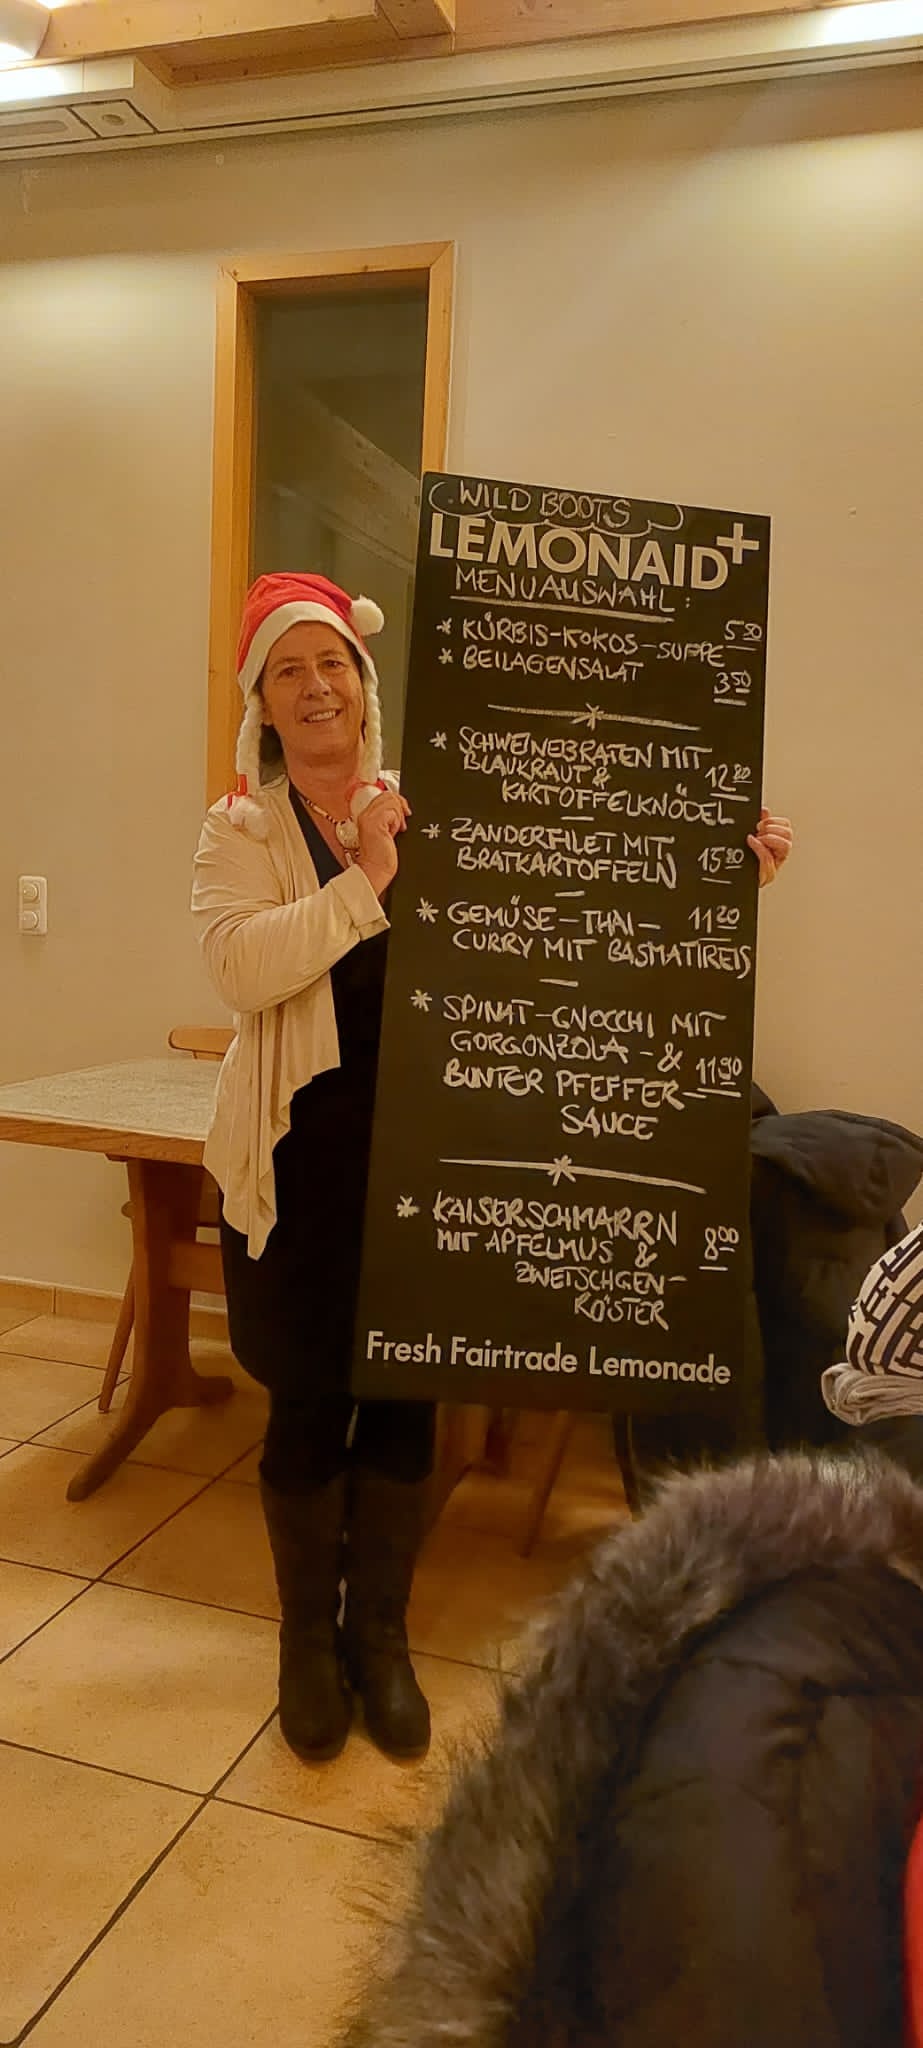 WILD BOOTS
LEMONAID+
MENUAUSWAHL:
* KÜRBIS-KOKOS-SUPPE 5 50
* BEILAGENSALAT 3 50
* SCHWEINEBRATEN MIT
BLAUKRAUT &
KARTOFFELKNÖDEL 12 80
* ZANDERFILET MIT
BRATKARTOFFELN 15 80
* GEMÜSE-THAI- 11 20
CURRY MIT BASMATIREIS
* SPINAT-GNOCCHI MIT
GORGONZOLA- &
BUNTER PFEFFER- 11 90
SAUCE
* KAISERSCHMARRN
MIT APFELMUS & 8 00
ZWETSCHGEN-
RÖSTER
Fresh Fairtrade Lemonade